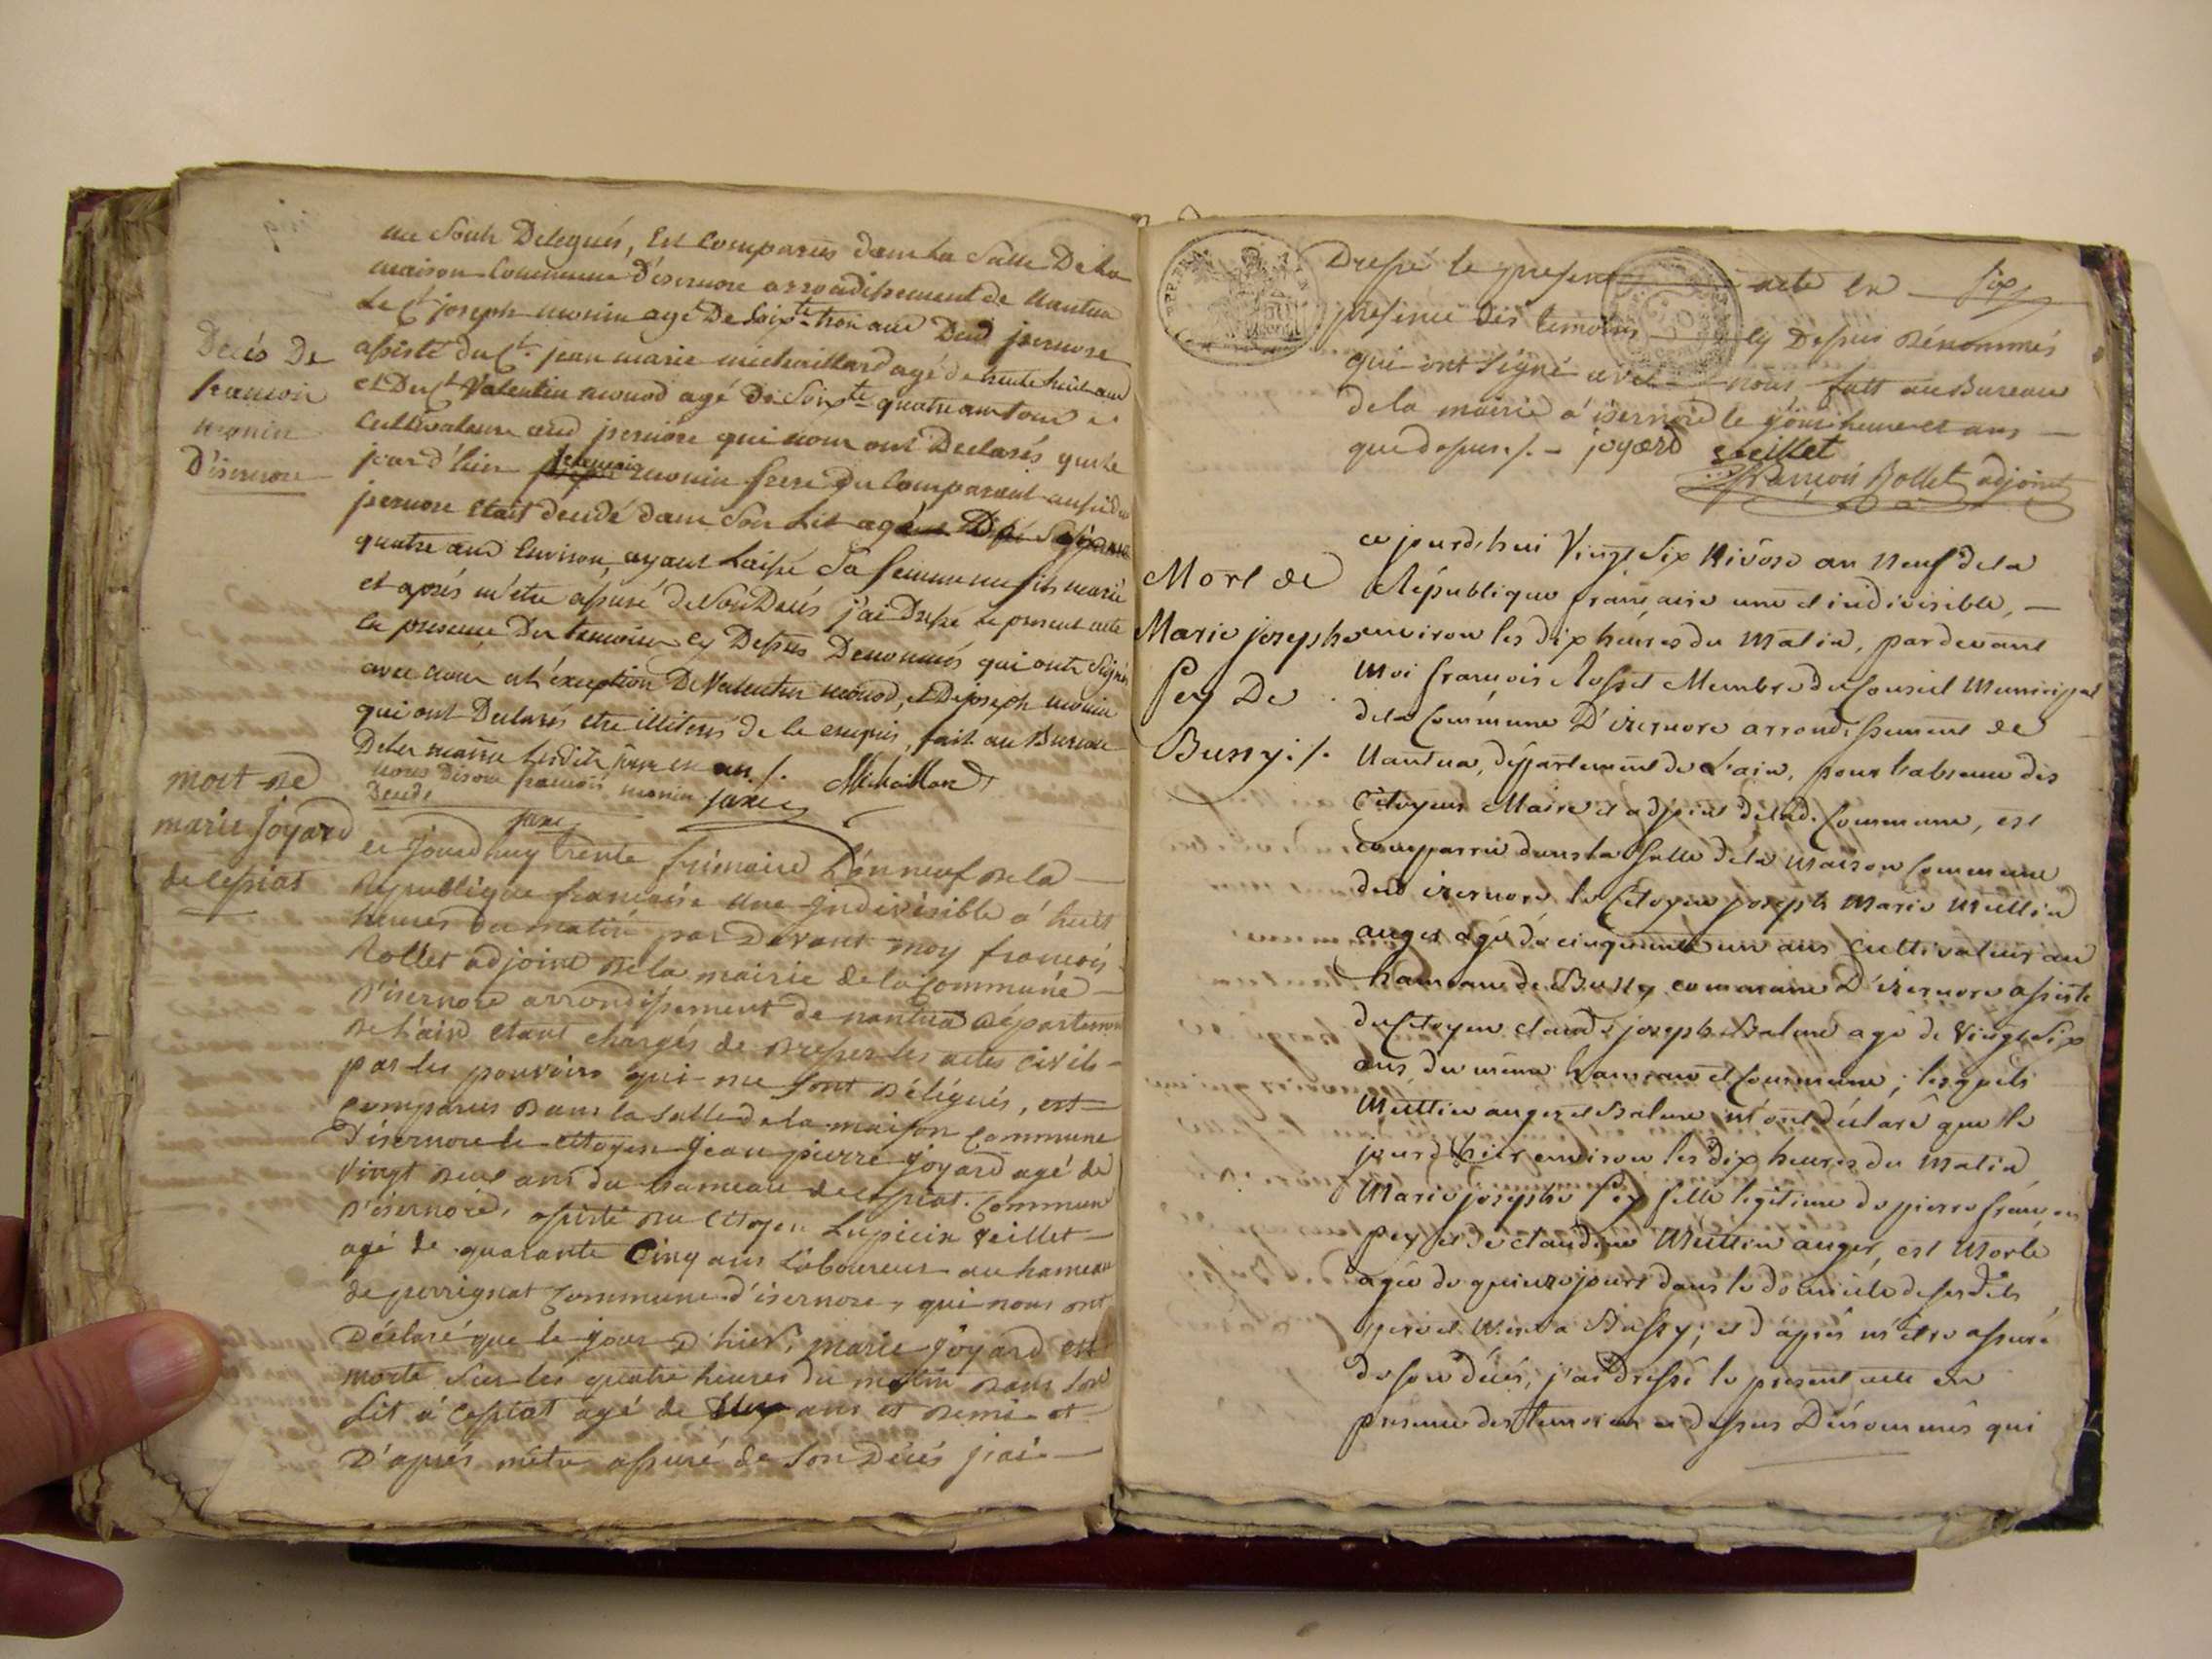 me sont Delegués, Est Comparus dans La Salle De La
maison Commune d'isernore arrondissement de Nantua
Le Ct joseph monin agé De soixte trois ans Dud jzernore
assisté du Ct. jean marie michaillard agé de trente huit ans
et Du Ct Valentin monod agé De soixte quatre ans tous
Cultivateurs aud jzernore qui nous ont Declarés que le
jour d'hier francois monin frere du Comparant aussi du
jzernore etait decedé dans son Lit agé
quatre ans Environ, ayant Laissé Sa femme un fils marié
et aprés m'etre assuré de son Decés j'ai Dressé le present acte
En presence Des temoins cy Dessus Denommés qui ont Signé
avec nous a l'exception De Valentin monod, et De joseph monin
qui ont Declarés etre illiterés de le enquis, fait au Bureau
De la mairie Lesdits jour et an ./. Michaillard
nous disons francois monin
Decedé
Decés De
francois
monin
D'isernore
mort de
marie Joyard
de cessiat
ce jourdhuy trente frimaire L'an neuf de la
République francaise une indivisible a huit
heures du matin par Devant moy francois
Rollet adjoint de la mairie de la Commune
D'isernore arrondissement de nantua département
de L'ain etant chargés de dresser les actes civils
par les pouvoirs qui me sont délégués, est
comparus dans la salle de la maison Commune
D'isernore le citoyen Jean pierre Joyard agé de
vingt neuf ans du hameau de cessiat Commune
D'isernore, assisté du citoyen Lupicin Veillet
agé de quarante Cinq ans Laboureur au hameau
de perrignat Commune d'isernore, qui nous ont
Déclaré que le jour D'hier, marie Joyard est
morte sur les quatre heures du matin dans son
Lit a cessiat agé de ans et demi et
D'aprés m'etre assuré de son Décés j'ai
Dressé le present acte en six
présence des temoins cy Dessus dénommés
qui ont signé avec nous fait au Bureau
de la mairie d'isernore le jour heure et ans
que dessus ./. joyard veillet
françois Rollet adjoint
Mort de
Marie josephe
Pey De
Bussy ./.
ce jourd'hui Vingt Six Nivôse an Neuf de la
République française une et indivisible,
environ les dix heures du Matin, pardevant
Moi françois Rosset Membre du Conseil Municipal
de la Commune D'izernore arrondissement de
Nantua, département de L'ain, pour l'absence des
Citoyens Maire et adjoint de lad. Commune, est
comparru dans la salle de la Maison Commune
dud izernore le Citoyen joseph Marie Mettin
auger agé de cinquante un ans Cultivateur au
hameau de Bussy commune D'izernore assisté
du Citoyen claude joseph Balme agé de Vingt Six
ans, du même hameau et Commune; lesquels
Mettin auger et Balme m'ont déclaré que le
jour d'hier environ les dix heures du Matin
Marie josephe Pey fille légitime de pierre françois
pey et de claudine Mettin auger, est Morte
agée de quinze jours dans le domicile de ses dits
pere et Mere a Bussy; et d'aprés m'être assuré
de son décés, j'ai dréssé le present acte en
presence des temoins ci dessus Dénommés qui